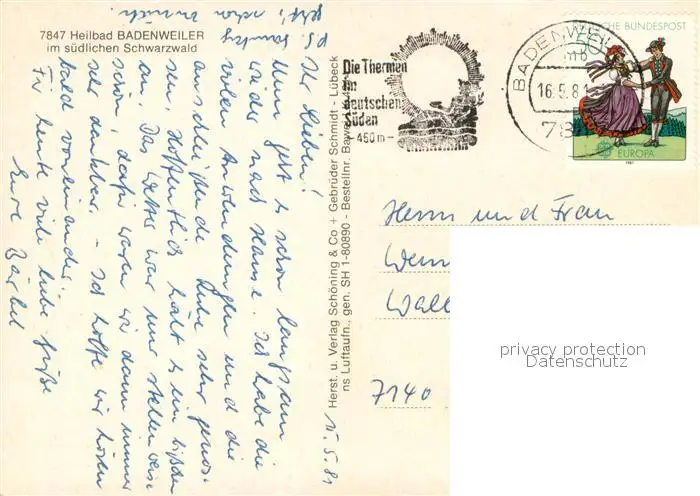 7847 Heilbad BADENWEILER
im südlichen Schwarzwald
15.5.81
Ihr Lieben!
Nun geht es schon langsam
wieder nach Hause. Ich habe die
vielen Anwendungen und die
anschließende Ruhe sehr genos-
sen. Hoffentlich hält es ein bißchen
an. Das Wetter war nur stellenweise
schön, dafür waren wir dann immer
sehr dankbar. - Ich hoffe wir hören
bald voneinander.
Für heute viele liebe Grüße
Eure Bärbel
PS. Samstag
schon zurück.
Herst. u. Verlag Schöning & Co + Gebrüder Schmidt - Lübeck
ns Luftaufn., gen. SH 1-80890 - Bestellnr.
Die Thermen
im
deutschen
Süden
- 450 m -
BADENWEIL
16.5.81
78
DEUTSCHE BUNDESPOST
50
EUROPA
1981
Herrn und Frau
Wall
7140
privacy protection
Datenschutz